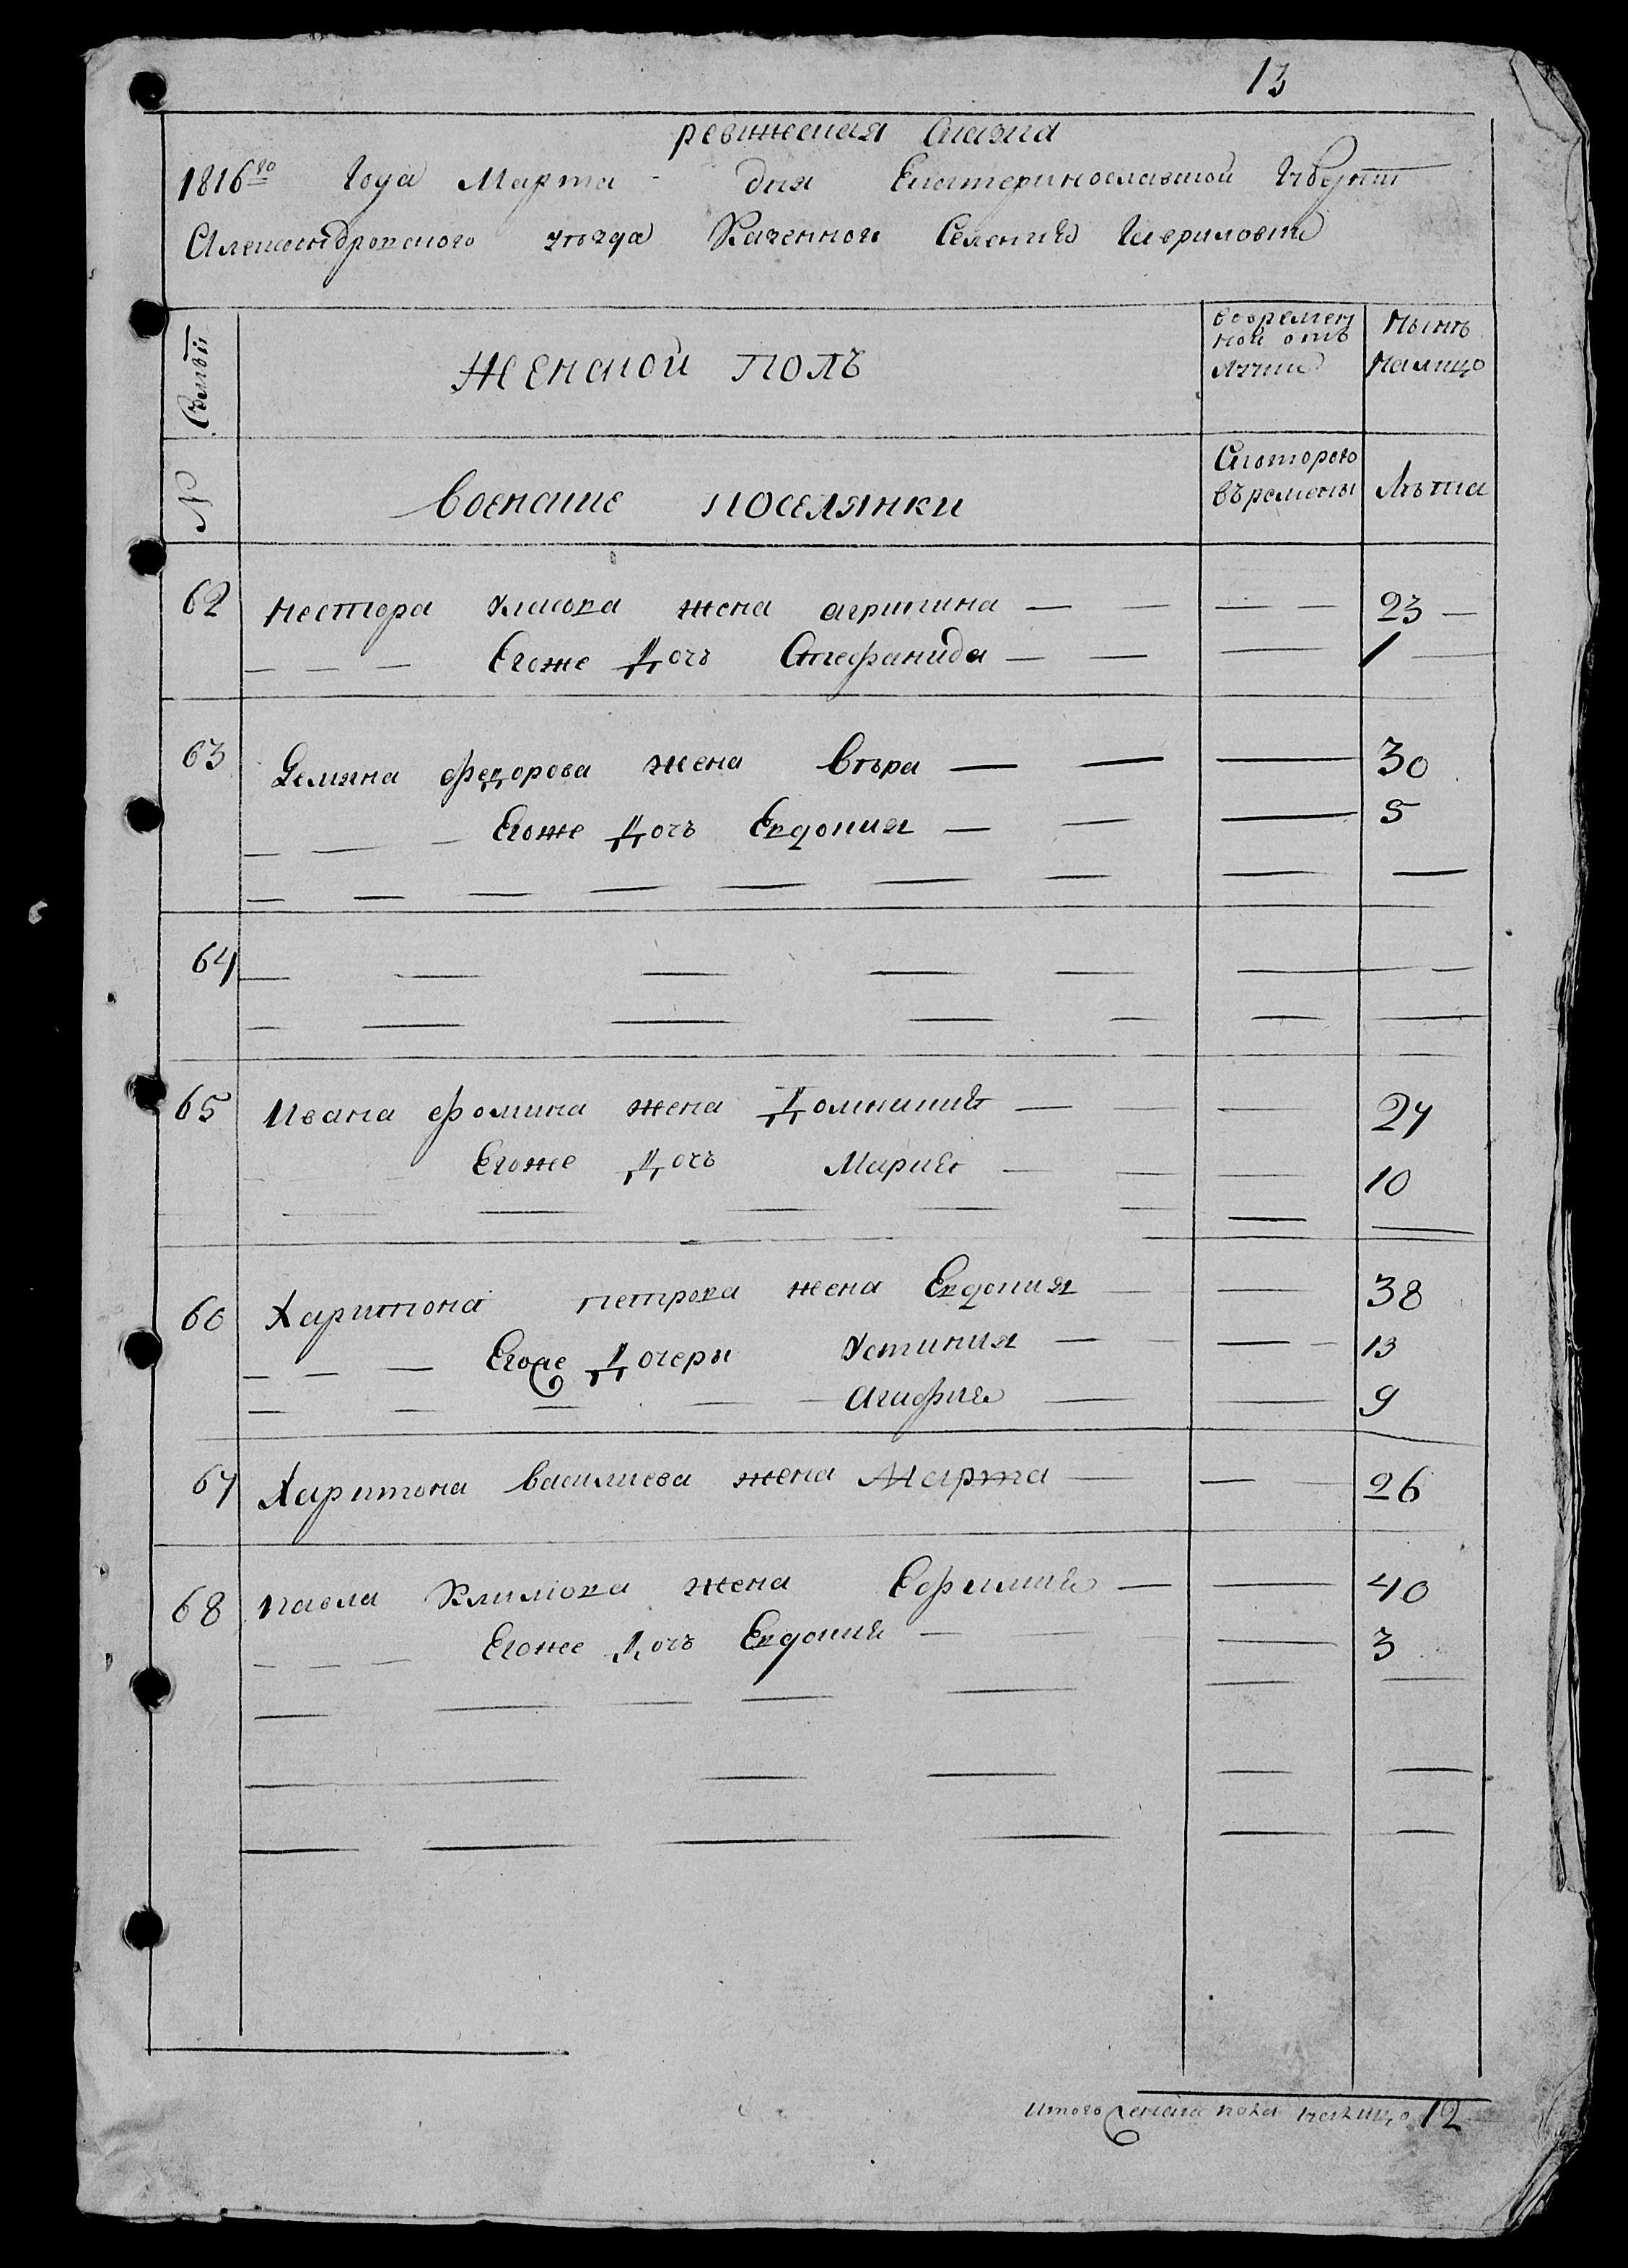 13
ревижская Сказка
1816го Года Марта дня Екатеринославской Губерни
Александровского уезда Казенного Селения Гавриловки
Семьи
женской полъ
вовремен
ной отъ
лучке
Нынъ
налицо
№
военские поселянки
Скоторого
времены
Лъта
62 Нестора Власова жена агрипина — — — — 23 —
— — — Егоже Дочъ Стефанида — — — 1 —
63 Демяна федорова жена Въра — — — 30
— — — Егоже Дочъ Евдокия — — — 5
64 — — — — — — —
65 Ивана фомина жена Домникия — — — 27
Егоже Дочъ Мария — — — 10
66 Харитона петрова жена Евдокия — — 38
— — — Егоже Дочеры Устиния — — — 13
— — — — — Агафия — — 9
67 Харитона Василиева жена Марта — — — 26
68 павла Климова жена Ефимия — — 40
— — — Егоже Дочъ Евдокия — — — 3
Итого женска пола налицо 12